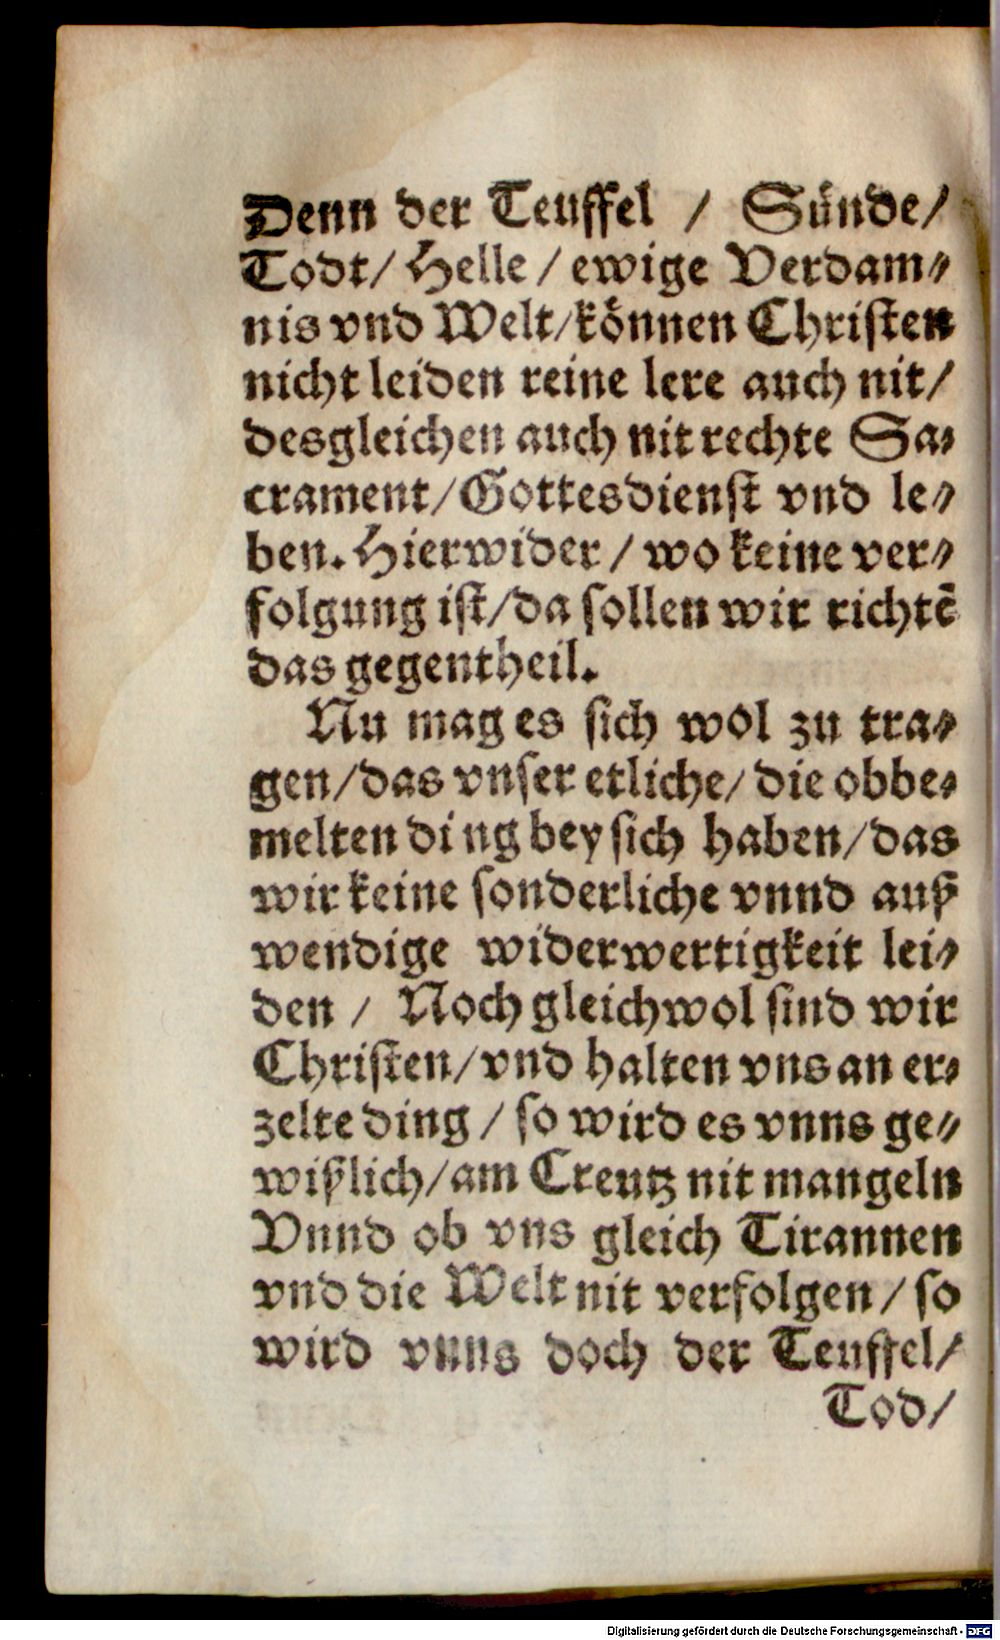 Denn der Teuffel / Sünde/
Todt/ Helle / ewige Verdam⸗
nis vnd Welt/können Christen
nicht leiden reine lere auch nit/
desgleichen auch nit rechte Sa⸗
crament/Gottesdienst vnd le⸗
ben. Hierwider / wo keine ver⸗
folgung ist/da sollen wir richtē
das gegentheil.
Nu mag es sich wol zu tra⸗
gen/das vnser etliche/ die obbe⸗
melten ding bey sich haben/das
wir keine sonderliche vnnd auß
wendige widerwertigkeit lei⸗
den / Noch gleichwol sind wir
Christen/vnd halten vns an er⸗
zelte ding / so wird es vnns ge⸗
wißlich/am Creutz nit mangeln
Vnnd ob vns gleich Tirannen
vnd die Welt nit verfolgen / so
wird vnns doch der Teuffel/
Tod/
Digitalisierung gefördert durch die Deutsche Forschungsgemeinschaft - DFG